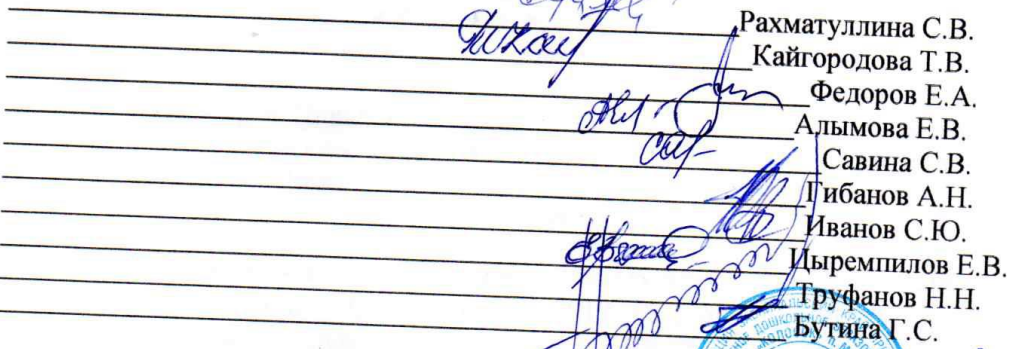 Рахматуллина С.В.
Кайгородова Т.В.
Федоров Е.А.
Алымова Е.В.
Савина С.В.
Гибанов А.Н.
Иванов С.Ю.
Цыремпилов Е.В.
Труфанов Н.Н.
Бутина Г.С.